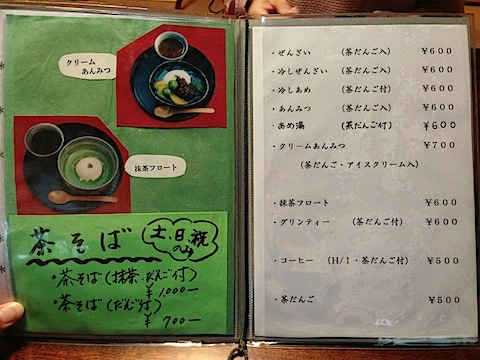 クリーム
あんみつ
抹茶フロート
茶そば
土、日、祝
のみ
・茶そば(抹茶、だんご付)
¥1,000ー
・茶そば(だんご付)
¥700ー
・ぜんざい (茶だんご入) ¥600
・冷しぜんざい (茶だんご入) ¥600
・冷しあめ (茶だんご付) ¥600
・あんみつ (茶だんご入) ¥600
・あめ湯 (茶だんご付) ¥600
・クリームあんみつ ¥700
(茶だんご・アイスクリーム入)
・抹茶フロート ¥600
・グリンティー (茶だんご付) ¥600
・コーヒー (H/I・茶だんご付) ¥500
・茶だんご ¥500